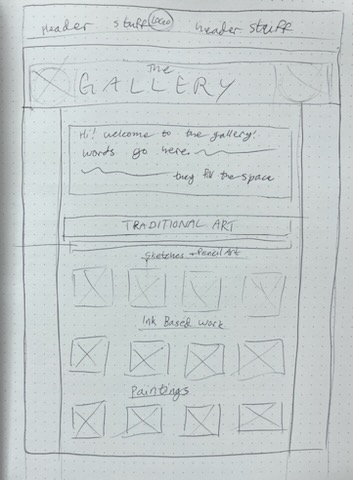 Header stuff logo header stuff
the
GALLERY
Hi! welcome to the gallery!
words go here
they fill the space
TRADITIONAL ART
Sketches + Pencil Art
Ink Based Work
Paintings